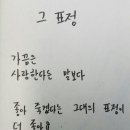 그 표정
가끔은
사랑한다는 말보다
좋아 죽겠다는 그대의 표정이
더 좋아요